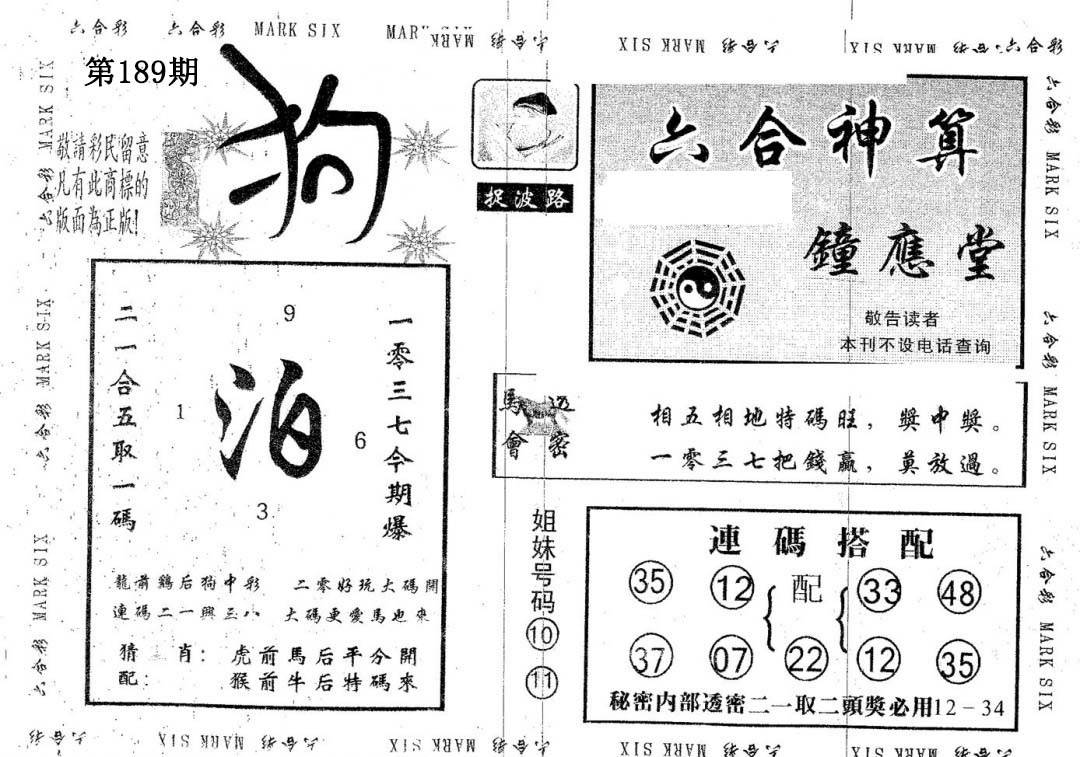 六合彩 六合彩 MARK SIX MARK SIX 六合彩
MARK SIX 六合彩 MARK SIX 六合彩
第189期
狗
敬請彩民留意
凡有此商標的
版面為正版!
捉波路
六合神算
鐘應堂
敬告读者
本刊不设电话查询
二一合五取一碼
9
1
泊
6
3
一零三七今期爆
龍前鷄后狗中彩 二零好玩大碼開
連碼二一興三八 大碼更愛馬也來
猜 肖：虎前馬后平分開
配：猴前牛后特碼來
馬會透密
相五相地特碼旺，獎中獎。
一零三七把錢贏，莫放過。
姐妹号码
10
11
連碼搭配
35 12 配 33 48
37 07 22 12 35
秘密内部透密二一取二頭獎必用12-34
六合彩 MARK SIX 六合彩 MARK SIX 六合彩 MARK SIX
六合彩 MARK SIX 六合彩 MARK SIX 六合彩 MARK SIX
六合彩 MARK SIX 六合彩 MARK SIX 六合彩 MARK SIX 六合彩 MARK SIX 六合彩